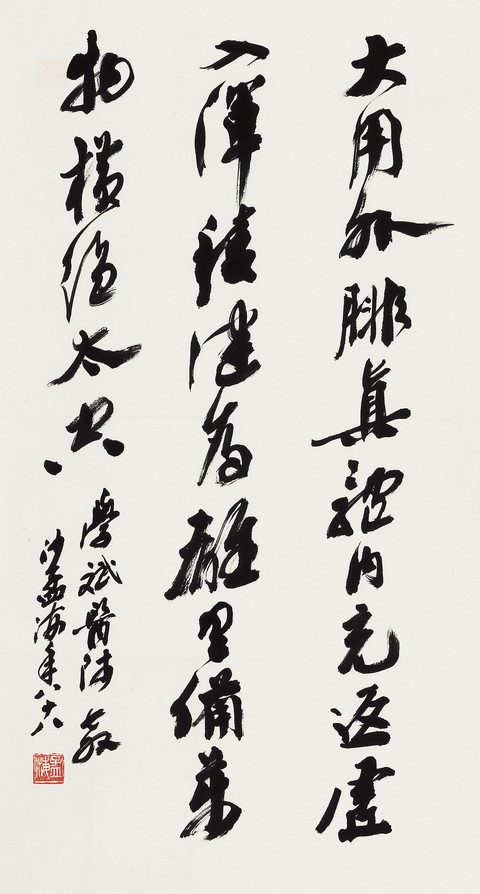 大用外腓真體内充返虛
入渾積健為雄具備萬
物橫絕太空
學斌醫師教
沙孟海年八十八
孟海